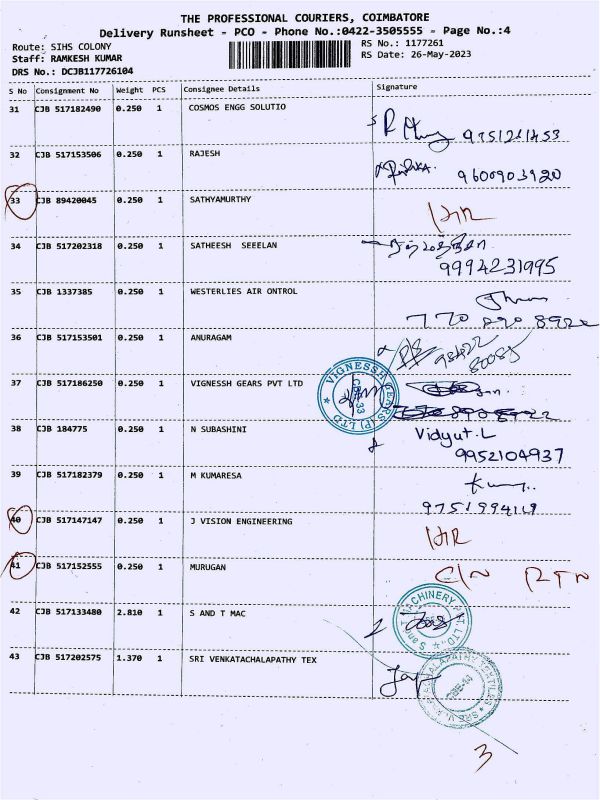 THE PROFESSIONAL COURIERS, COIMBATORE
Delivery Runsheet - PCO - Phone No.:0422-3505555 - Page No.:4
Route: SIHS COLONY
RS No.: 1177261
Staff: RAMKESH KUMAR
RS Date: 26-May-2023
DRS No.: DCJB117726104
S No Consignment No Weight PCS Consignee Details Signature
31 CJB 517182490 0.250 1 COSMOS ENGG SOLUTIO
9751211453
32 CJB 517153506 0.250 1 RAJESH
9600903920
33 CJB 89420045 0.250 1 SATHYAMURTHY
34 CJB 517202318 0.250 1 SATHEESH SEEELAN
9994231995
35 CJB 1337385 0.250 1 WESTERLIES AIR ONTROL
36 CJB 517153501 0.250 1 ANURAGAM
37 CJB 517186250 0.250 1 VIGNESSH GEARS PVT LTD
VIGNESSH GEARS (P) LTD
38 CJB 184775 0.250 1 N SUBASHINI Vidyut.L
9952104937
39 CJB 517182379 0.250 1 M KUMARESA
40 CJB 517147147 0.250 1 J VISION ENGINEERING
41 CJB 517152555 0.250 1 MURUGAN C/N RTN
42 CJB 517133480 2.810 1 S AND T MAC
43 CJB 517202575 1.370 1 SRI VENKATACHALAPATHY TEX
3